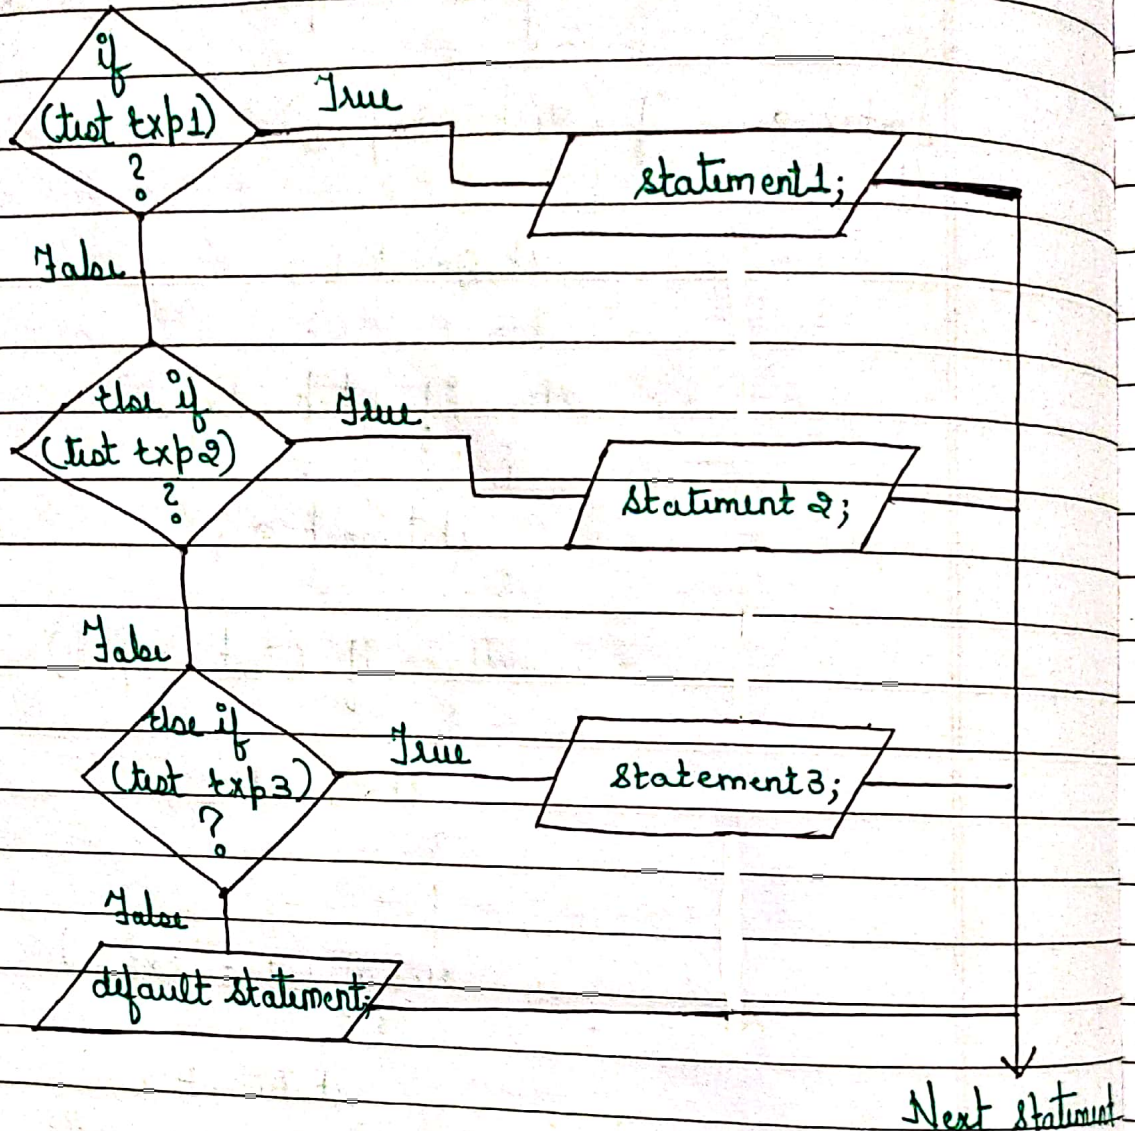 if
(test exp1)
?
True
statement1;
False
else if
(test exp2)
?
True
statement 2;
False
else if
(test exp3)
?
True
statement3;
False
default statement;
Next statement